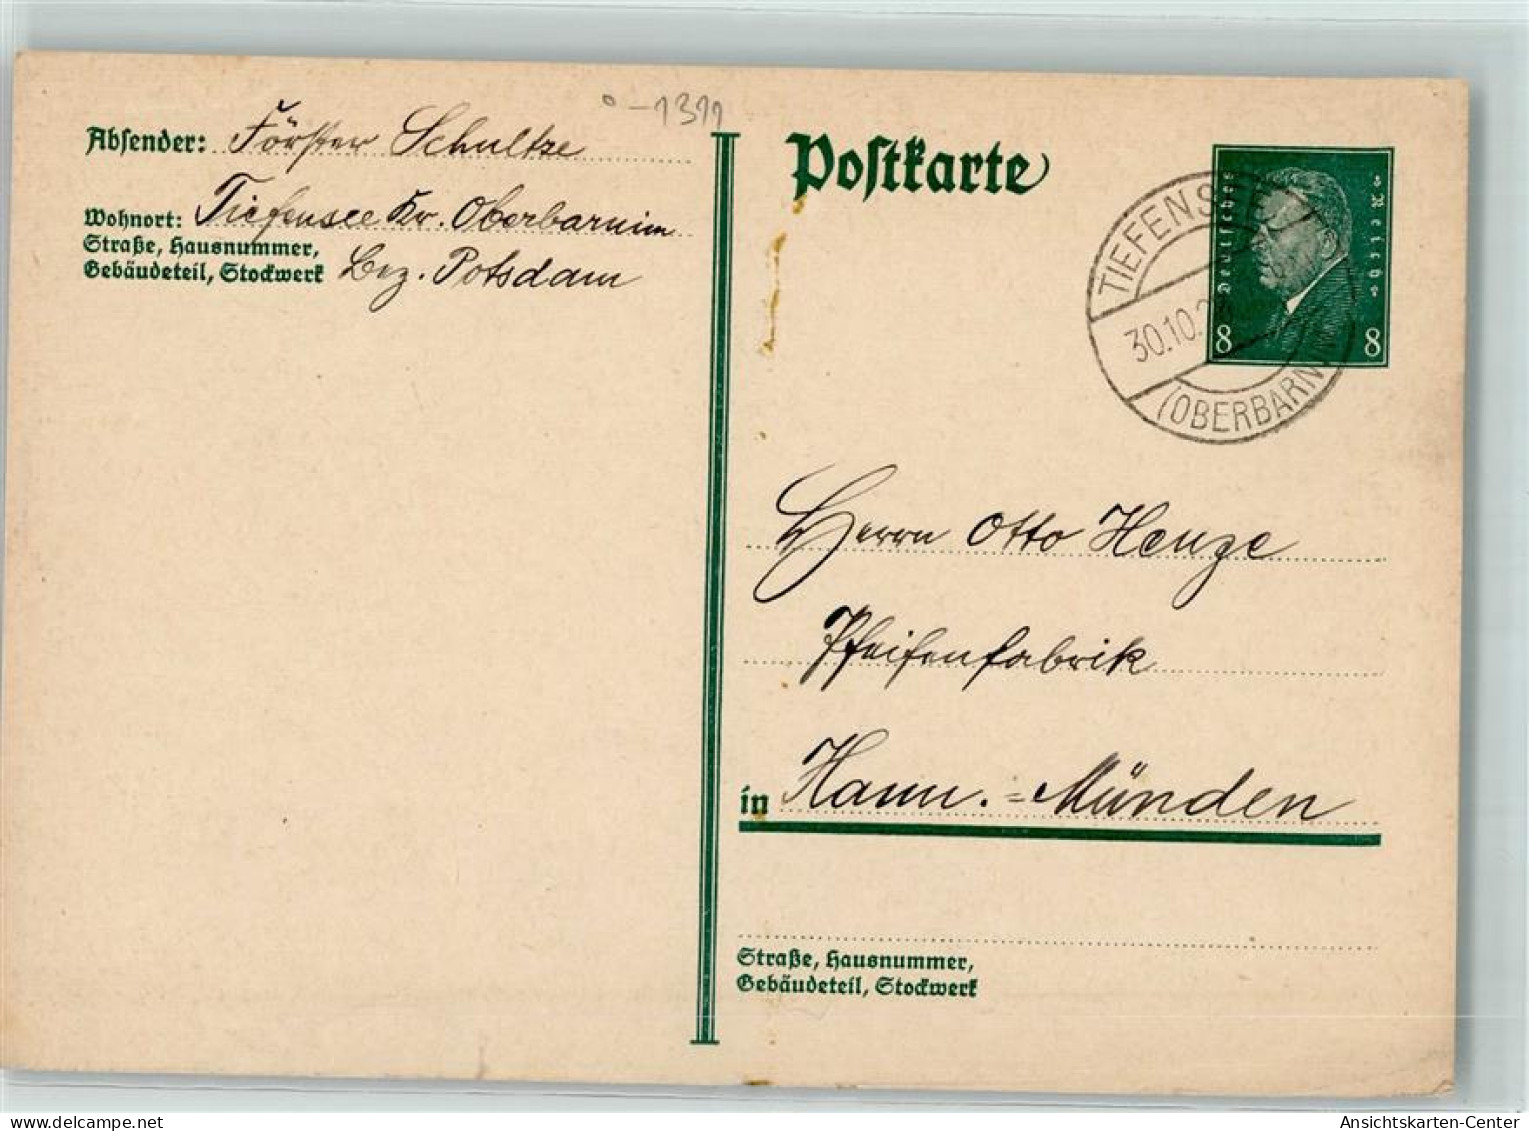 o-1311
Absender: Förster Schultze
Wohnort: Tiefensee Kr. Oberbarnim
Straße, Hausnummer,
Gebäudeteil, Stockwerk Bez. Potsdam
Postkarte
Deutsches Reich
8 8
TIEFENSEE
30.10.2
(OBERBARN
Herrn Otto Henze
Pfeifenfabrik
in Hann.=Münden
Straße, Hausnummer,
Gebäudeteil, Stockwerk
Ansichtskarten-Center